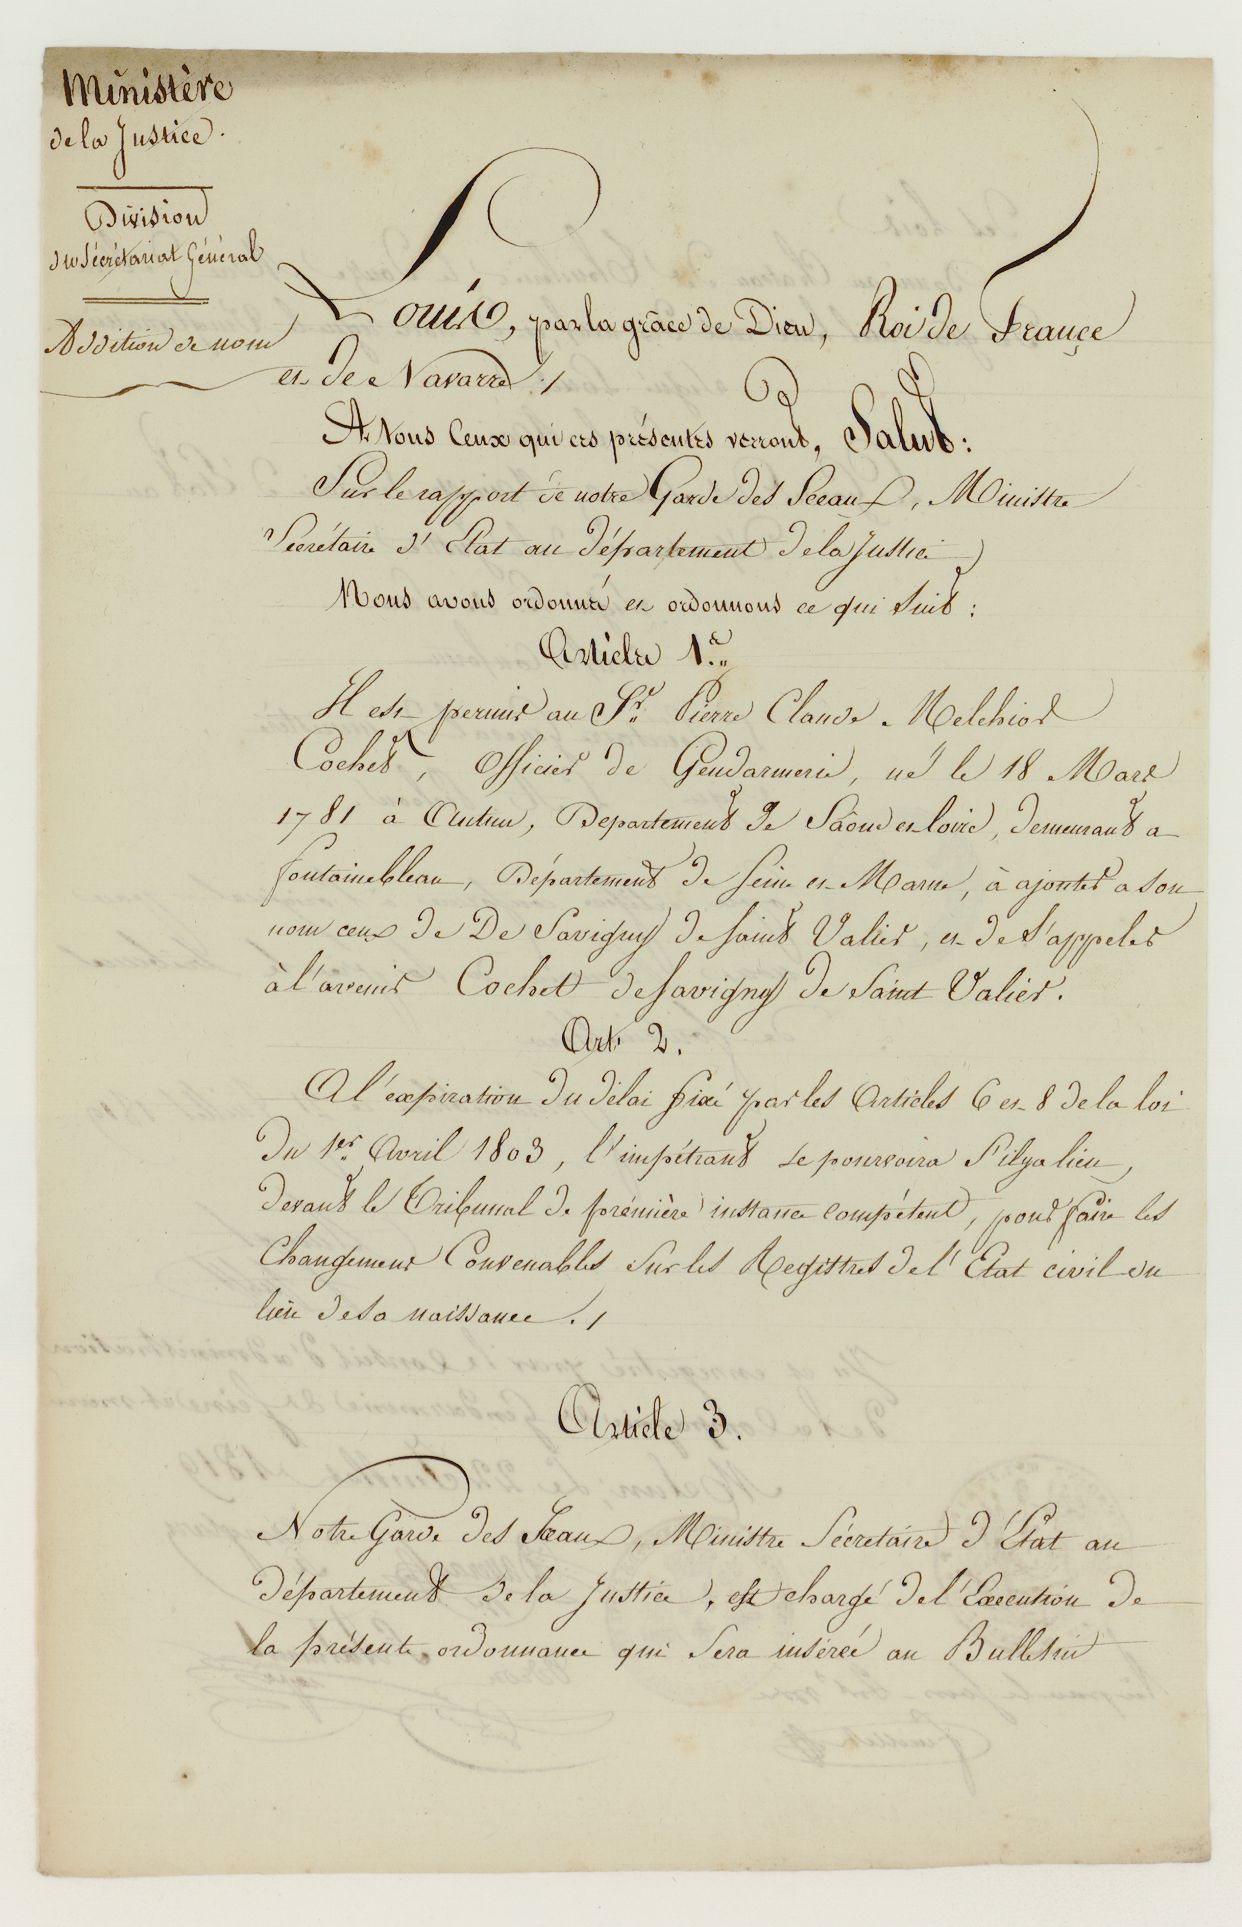 Ministère
de la Justice.
Division
du Sécrétariat Général
Addition de nom
Louis, par la grâce de Dieu, Roi de France
et de Navarre ./
A tous Ceux qui ces présentes verront, Salut :
Sur le rapport de notre Garde des Sceaux, Ministre
Secrétaire d'Etat au département de la Justice
Nous avons ordonné et ordonnons ce qui suit :
Article 1er.
Il est permis au Sr. Pierre Claude Melchior
Cochet, officier de Gendarmerie, né le 18 Mars
1781 à Autun, Departement de Saône et loire, demeurant a
fontainebleau, Département de seine et Marne, à ajouter a son
nom ceux de De Savigny de saint Valier, et de s'appeler
à l'avenir Cochet de Savigny de Saint Valier.
Art. 2.
A l'expiration du délai fixé par les Articles 6 et 8 de la loi
du 1er. Avril 1803, l'impétrant se pourvoira s'il y a lieu,
devant le Tribunal de première instance compétent, pour faire les
Changemens Convenables sur les Registres de l'Etat civil du
lieu de sa naissance ./
Article 3.
Notre Garde des Sceaux, Ministre Sécretaire d'État au
département de la Justice, est chargé de l'Execution de
la présente ordonnance qui sera insérée au Bulletin